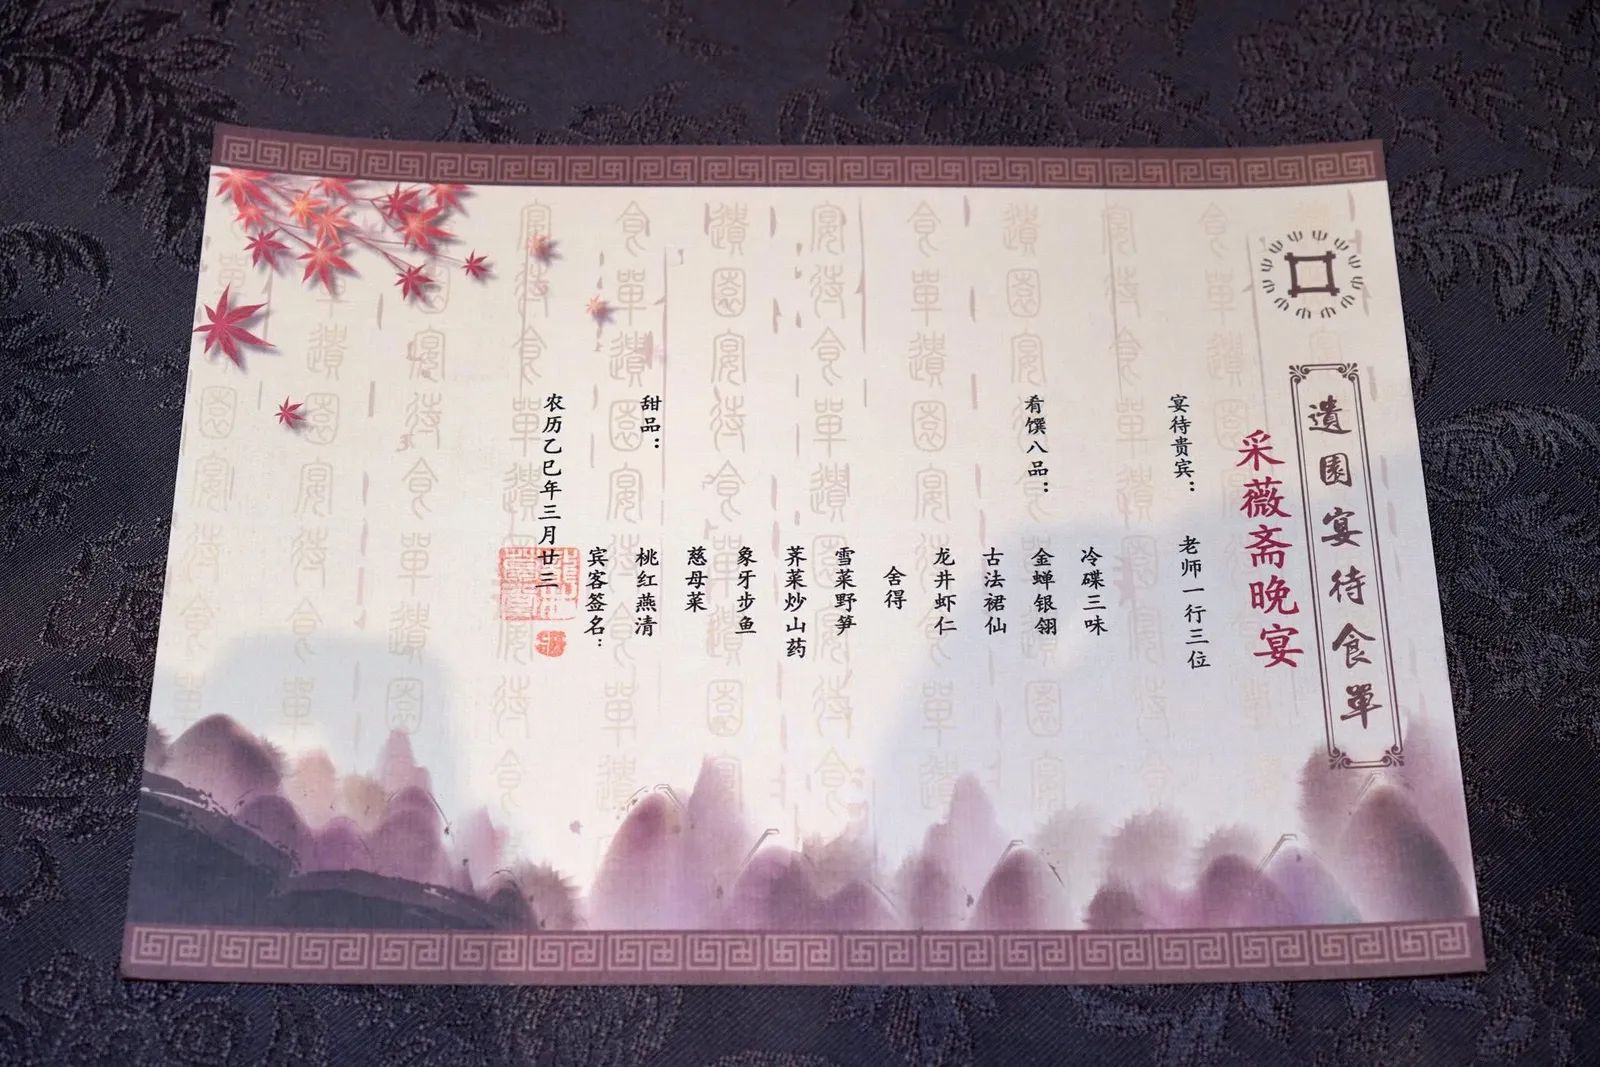 遺園宴待食單
采薇斋晚宴
宴待贵宾： 老师一行三位
肴馔八品：
冷碟三味
金蝉银翎
古法裙仙
龙井虾仁
舍得
雪菜野笋
荠菜炒山药
象牙步鱼
慈母菜
甜品：
桃红燕清
宾客签名：
农历乙巳年三月廿三